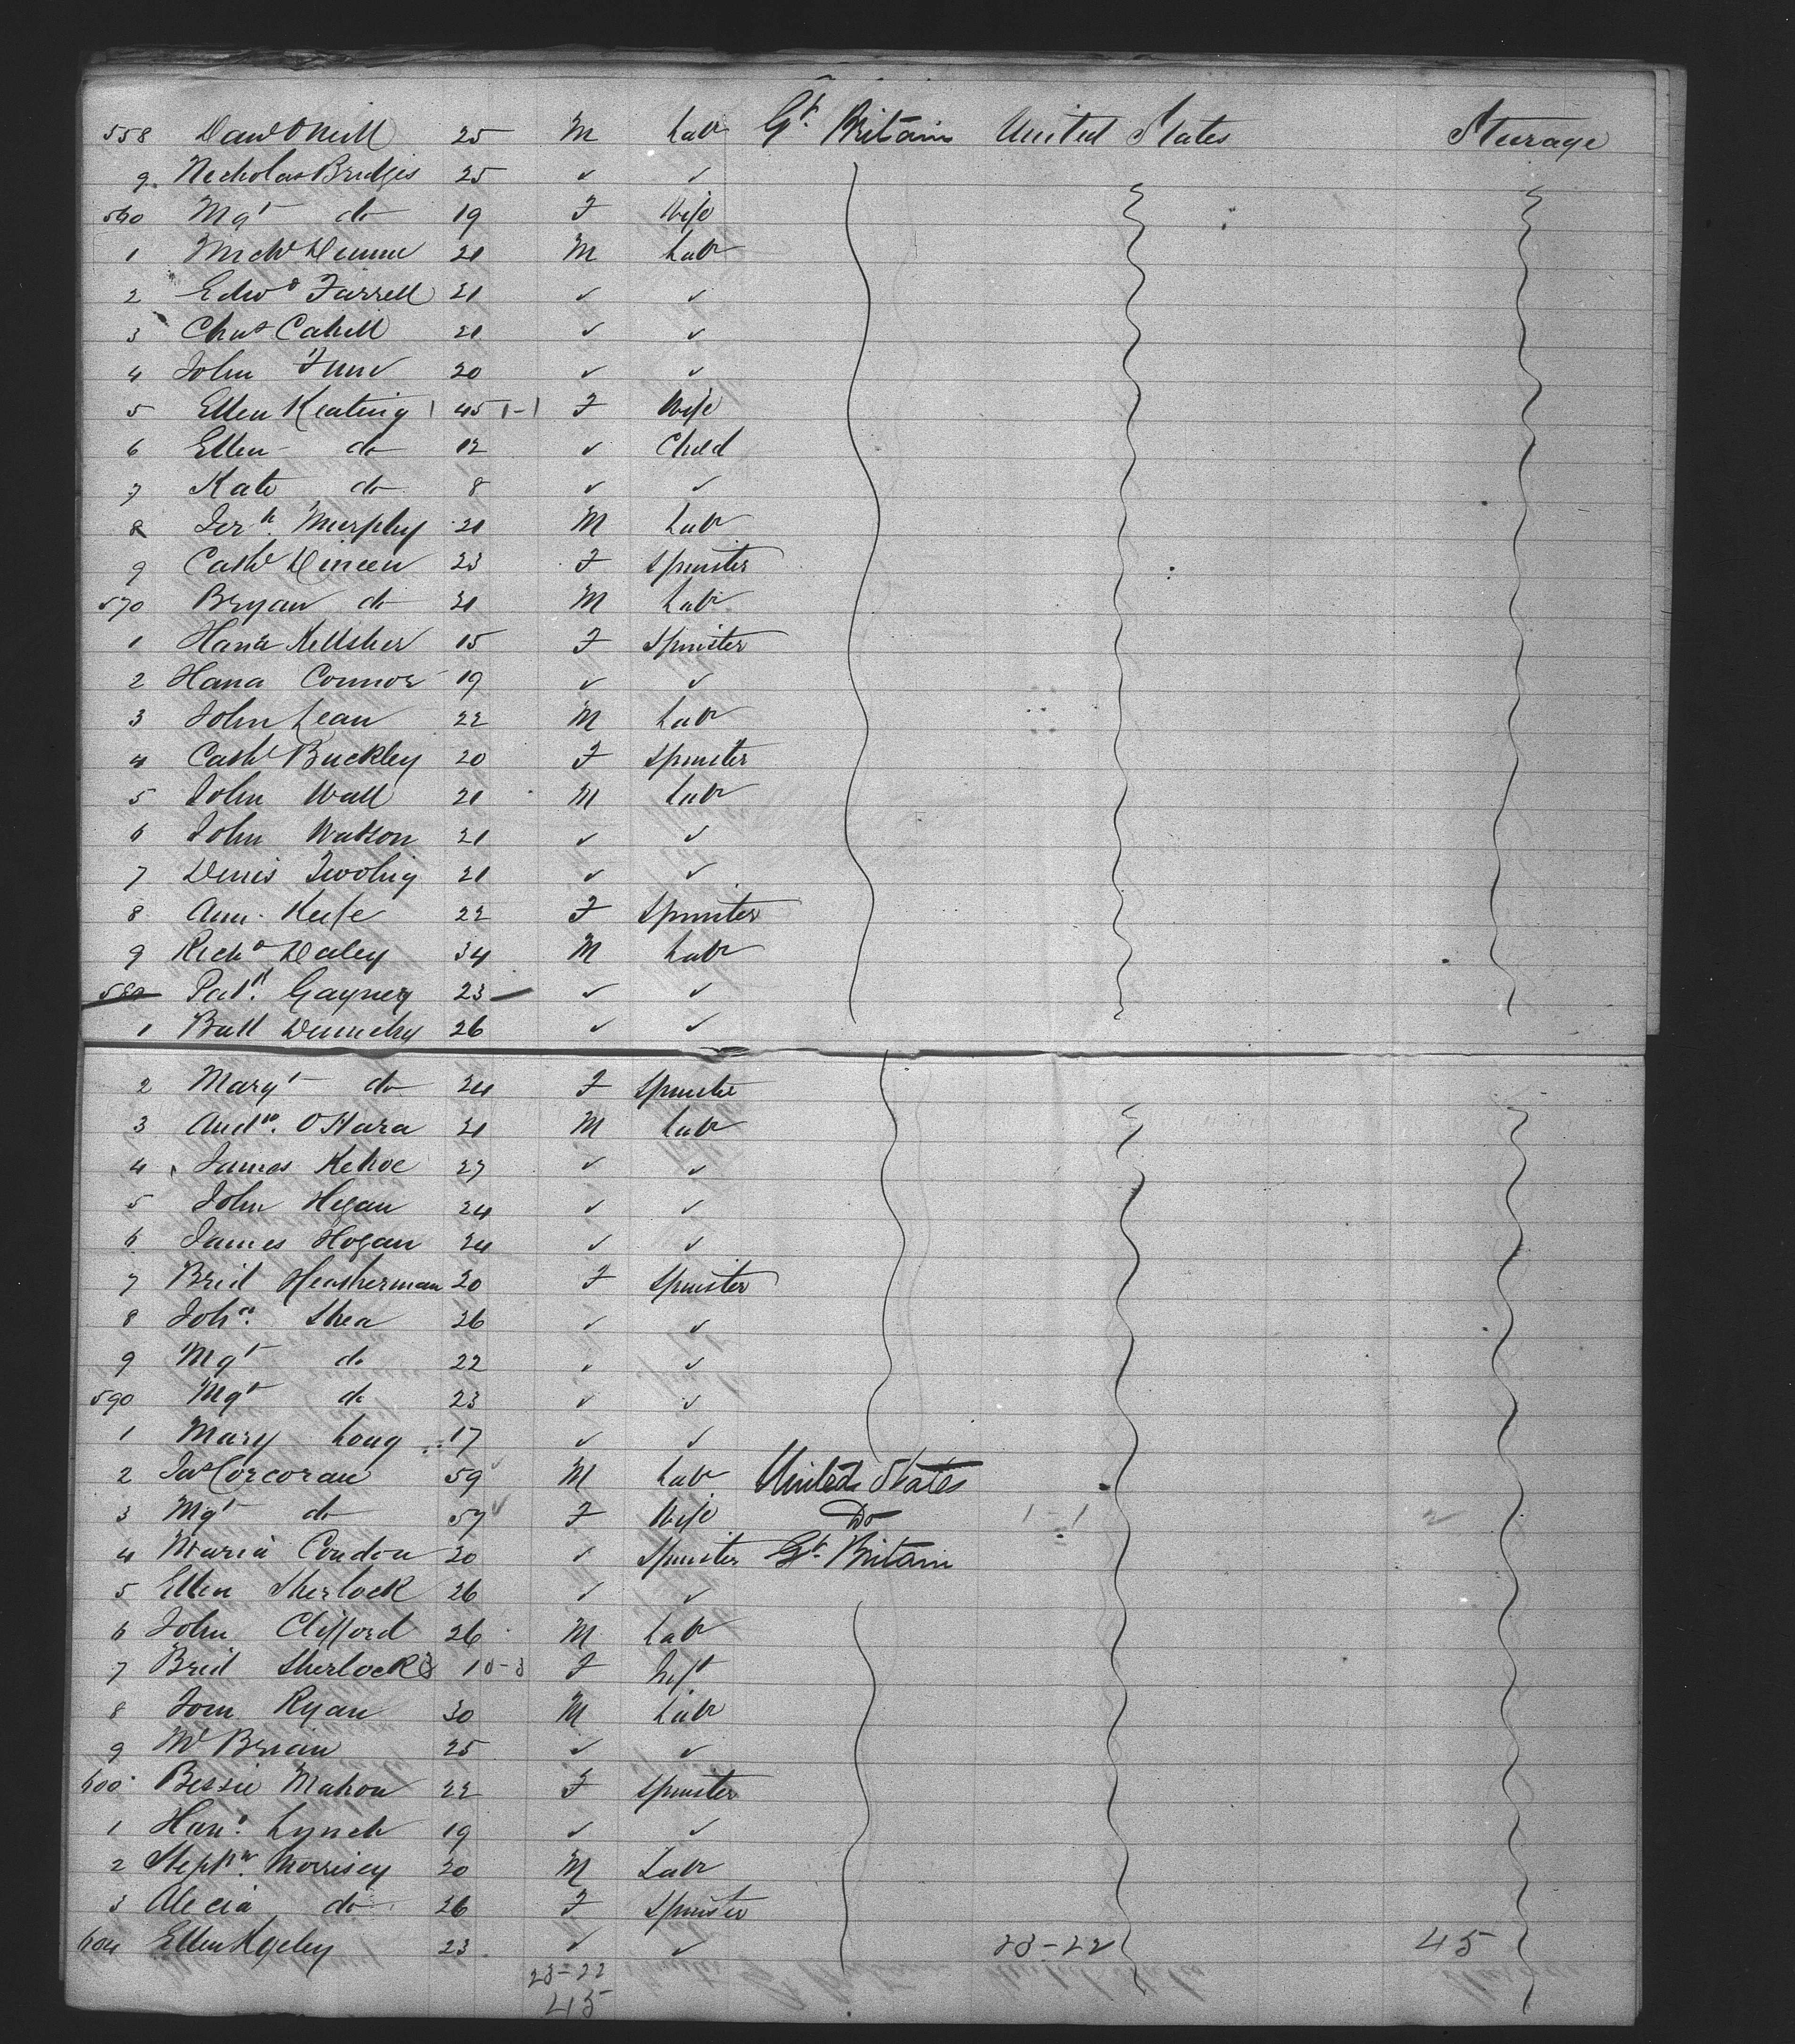 558 Danl O'Neill 25 M Labr Gt. Britain United States Steerage
9 Nicholas Bridges 25 ✓ ✓
560 Mgt do 19 F Wife
1 Michl Dunne 21 M Labr
2 Edwd Farrell 21 ✓ ✓
3 Chas Cahill 21 ✓ ✓
4 John 20 ✓ ✓
5 Ellen Keating 1 45 1-1 F Wife
6 Ellen do 12 ✓ Child
7 Kate do 8 ✓ ✓
8 Jerh. Murphy 21 M Labr
9 Cathe Dineen 23 F Spinster
570 Bryan do 21 M Labr
1 Hana Kellsher 15 F Spinster
2 Hana Connor 19 ✓ ✓
3 John Lean 22 M Labr
4 Cathe Buckley 20 F Spinster
5 John Wall 21 M Labr
6 John Watson 21 ✓ ✓
7 Denis Twohig 21 ✓ ✓
8 Ann Keefe 22 F Spinster
9 Richd Daley 34 M Labr
580 Patk. Gayney 23 ✓ ✓
1 Batt 26 ✓ ✓
2 Margt do 24 F Spinster
3 Andw. O'Hara 21 M Labr
4 James Kehoe 27 ✓ ✓
5 John Hogan 24 ✓ ✓
6 James Hogan 24 ✓ ✓
7 Brid Heatherman 20 F Spinster
8 Joha. Shea 26 ✓ ✓
9 Mgt do 22 ✓ ✓
590 Mgt do 23 ✓ ✓
1 Mary Long 17 ✓ ✓
2 Jas Corcoran 59 M Labr United States
3 Mgt do 57 F Wife Do 1-1 2
4 Maria Condon 20 ✓ Spinster Gt. Britain
5 Ellen Sherlock 26 ✓ ✓
6 John Clifford 26 M Labr
7 Brid Sherlock 10-3 F Inft
8 Tom Ryan 30 M Labr
9 Brian 25 ✓ ✓
600 Bessie Mahon 22 F Spinster
1 Hana. Lynch 19 ✓ ✓
2 Stephn. Morrisey 20 M Labr
3 Alecia do 26 F Spinster
604 Ellen 23 ✓ ✓ 23-22 45
23-22
45